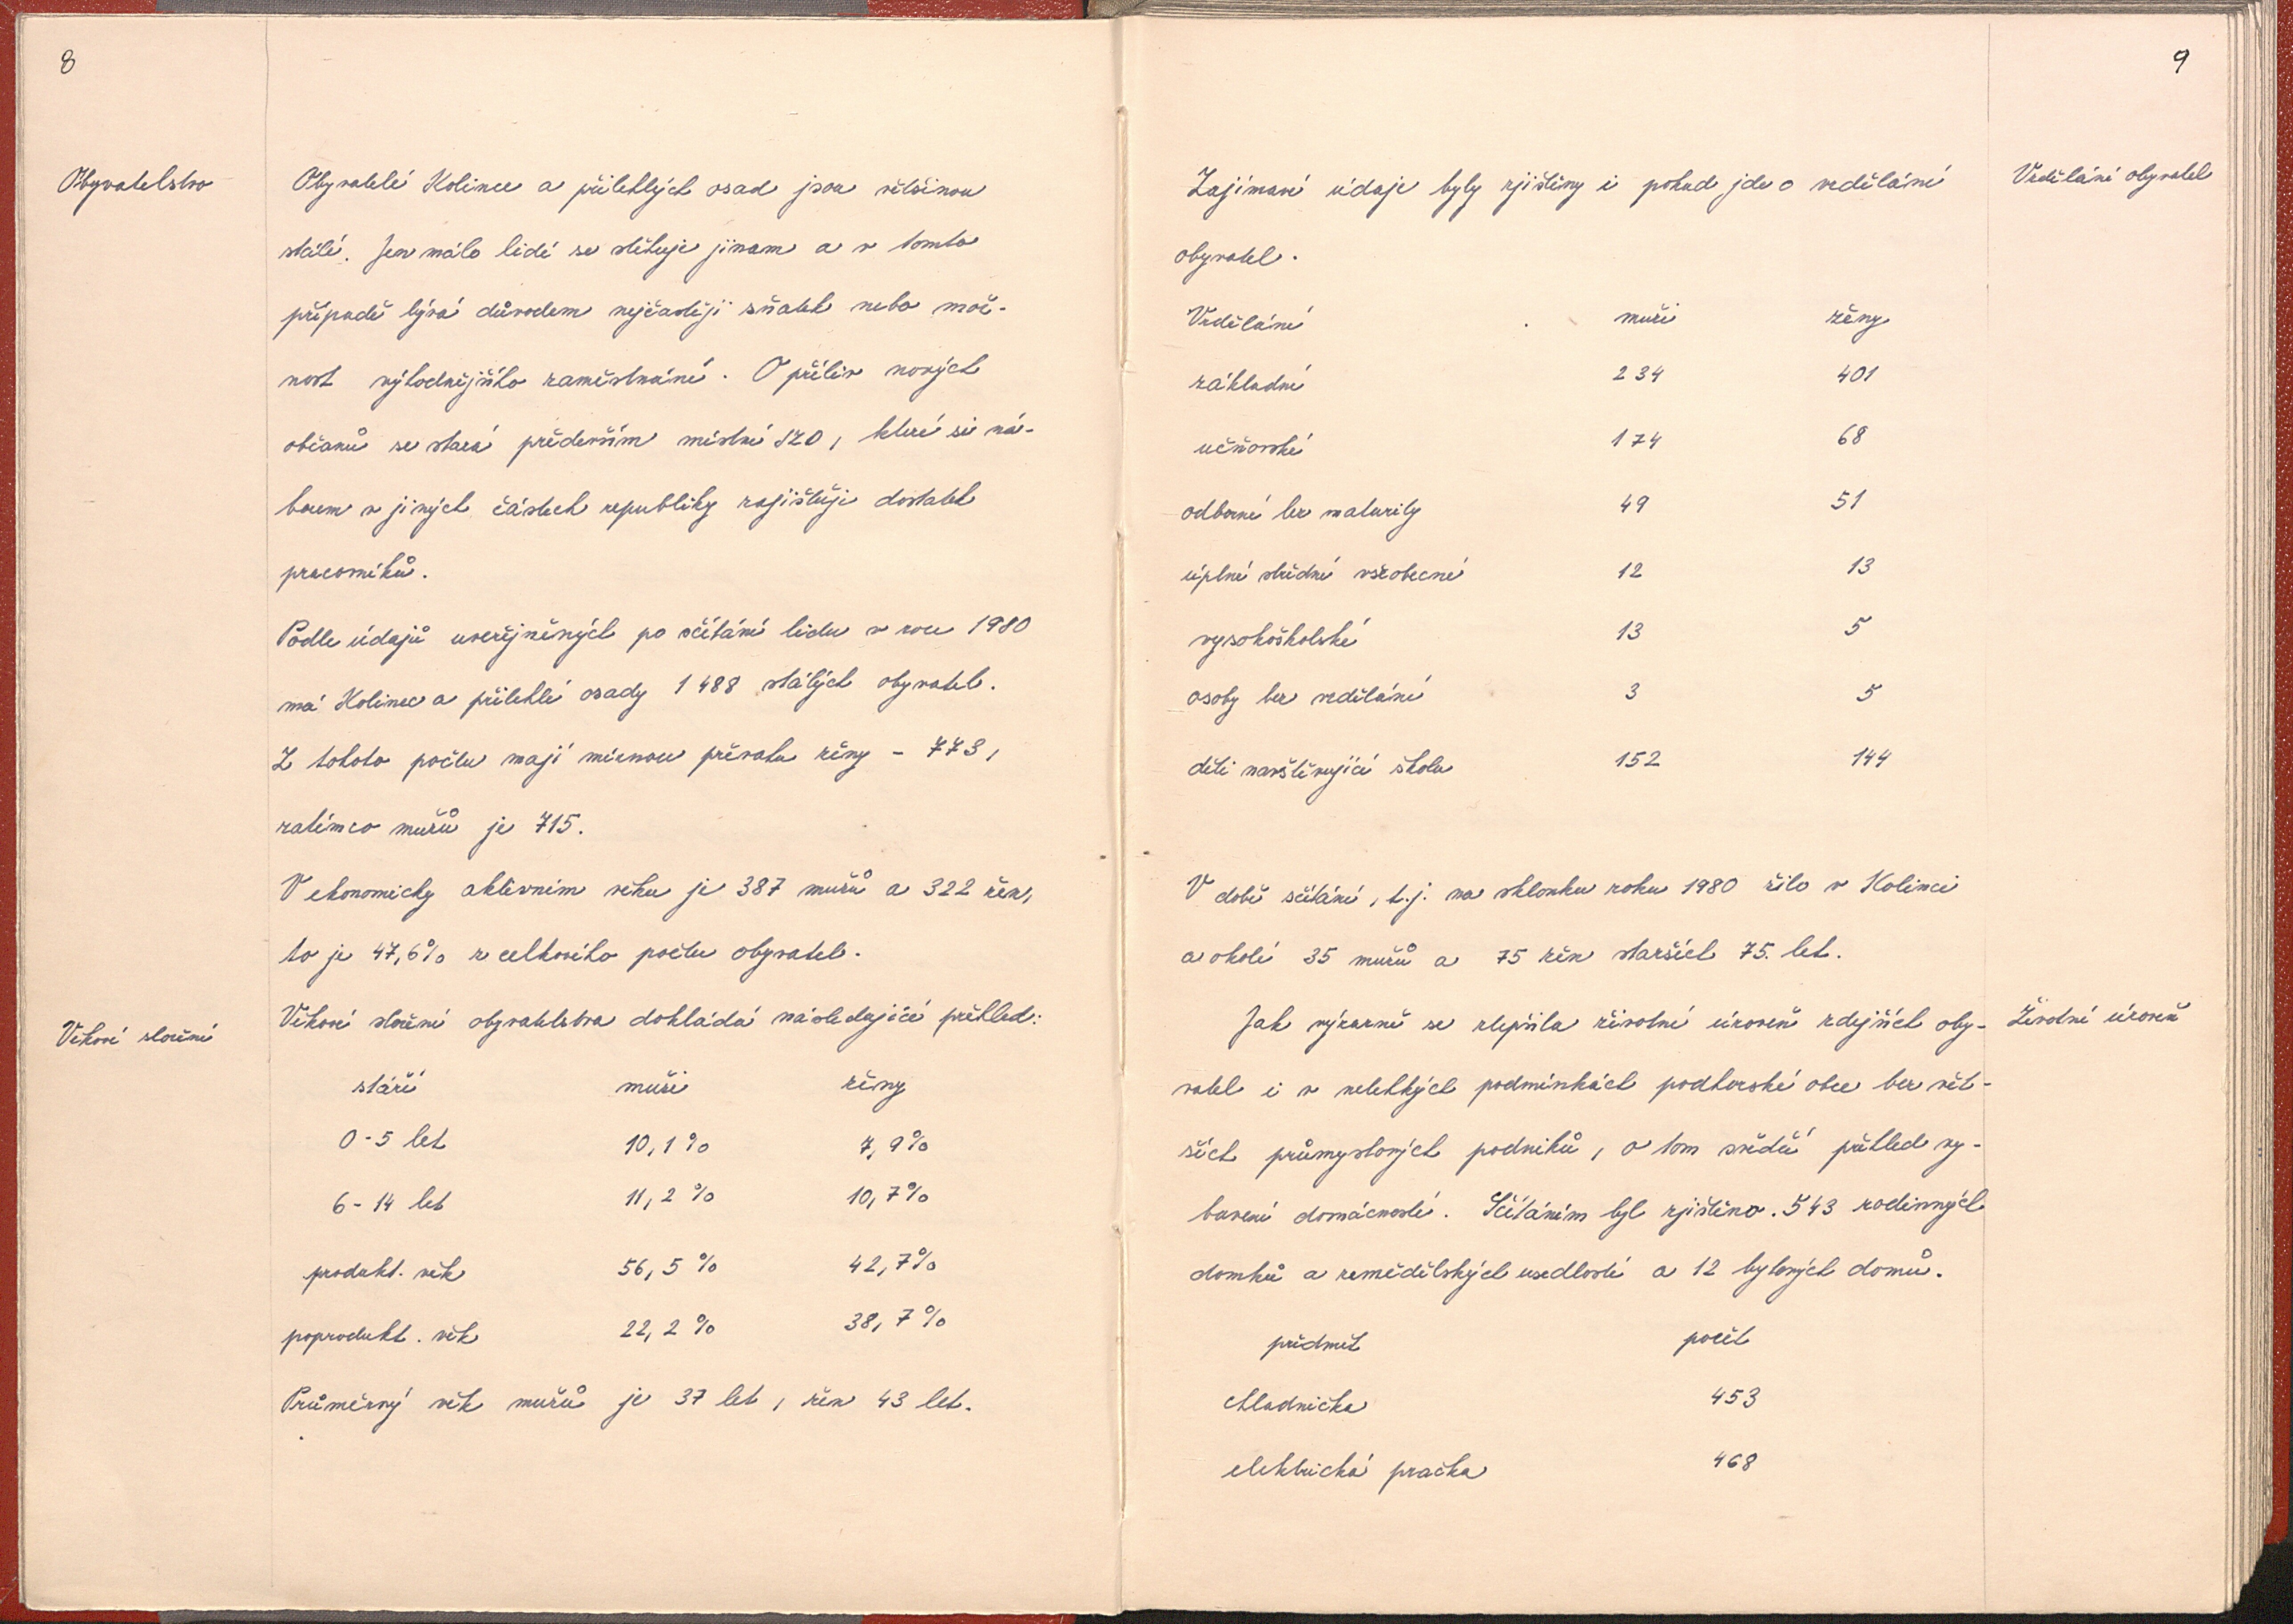 8
Obyvatelstvo
Obyvatelé Kolince a přilehlých osad jsou většinou
stálí. Jen málo lidí se stěhuje jinam a v tomto
případě bývá důvodem nejčastěji sňatek nebo mož-
nost výhodnějšího zaměstnání. O příliv nových
občanů se stará především místní JZD, které si ná-
borem v jiných částech republiky zajišťuje dostatek
pracovníků.
Podle údajů uveřejněných po sčítání lidu v roce 1980
má Kolinec a přilehlé osady 1 488 stálých obyvatel.
Z tohoto počtu mají mírnou převahu ženy - 773,
zatímco mužů je 715.
V ekonomicky aktivním věku je 387 mužů a 322 žen,
to je 47,6% z celkového počtu obyvatel.
Věkové složení
Věkové složení obyvatelstva dokládá následující přehled:
stáří muži ženy
0-5 let 10,1% 7,9%
6-14 let 11,2% 10,7%
produkt. věk 56,5% 42,7%
poprodukt. věk 22,2% 38,7%
Průměrný věk mužů je 37 let, žen 43 let.
9
Vzdělání obyvatel
Zajímavé údaje byly zjištěny i pokud jde o vzdělání
obyvatel.
Vzdělání muži ženy
základní 234 401
učňovské 174 68
odborné bez maturity 49 51
úplné střední všeobecné 12 13
vysokoškolské 13 5
osoby bez vzdělání 3 5
děti navštěvující školu 152 144
V době sčítání, t.j. na sklonku roku 1980 žilo v Kolinci
a okolí 35 mužů a 75 žen starších 75. let.
Životní úroveň
Jak výrazně se zlepšila životní úroveň zdejších oby-
vatel i v nelehkých podmínkách podhorské obce bez vět-
ších průmyslových podniků, o tom svědčí přehled vy-
bavení domácností. Sčítáním byl zjištěno. 543 rodinných
domků a zemědělských usedlostí a 12 bytových domů.
předmět počet
chladnička 453
elektrická pračka 468